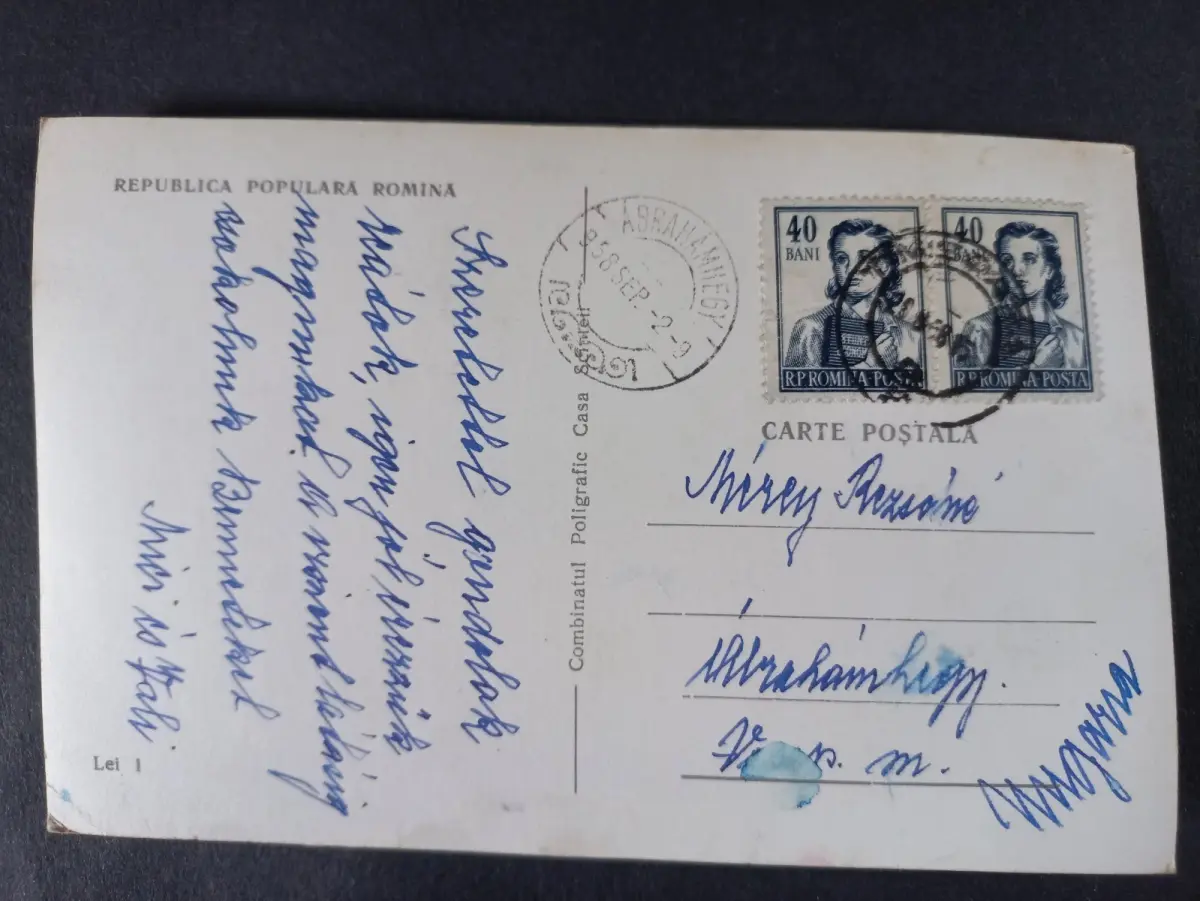 REPUBLICA POPULARĂ ROMINĂ
Szeretettel gondolok
Rátok, igen jól érezzük
magunkat és viszont látásig
csókolunk Benneteket
Mici és Pali
Lei 1
Combinatul Poligrafic Casa Scînteii
ÁBRAHÁMHEGY
958 SEP. -2
40
BANI
R.P.ROMINA POSTA
40
BANI
R.P.ROMINA POSTA
CARTE POȘTALĂ
Mérey Rezsőné
Ábrahámhegy.
V p. m.
Ungarra